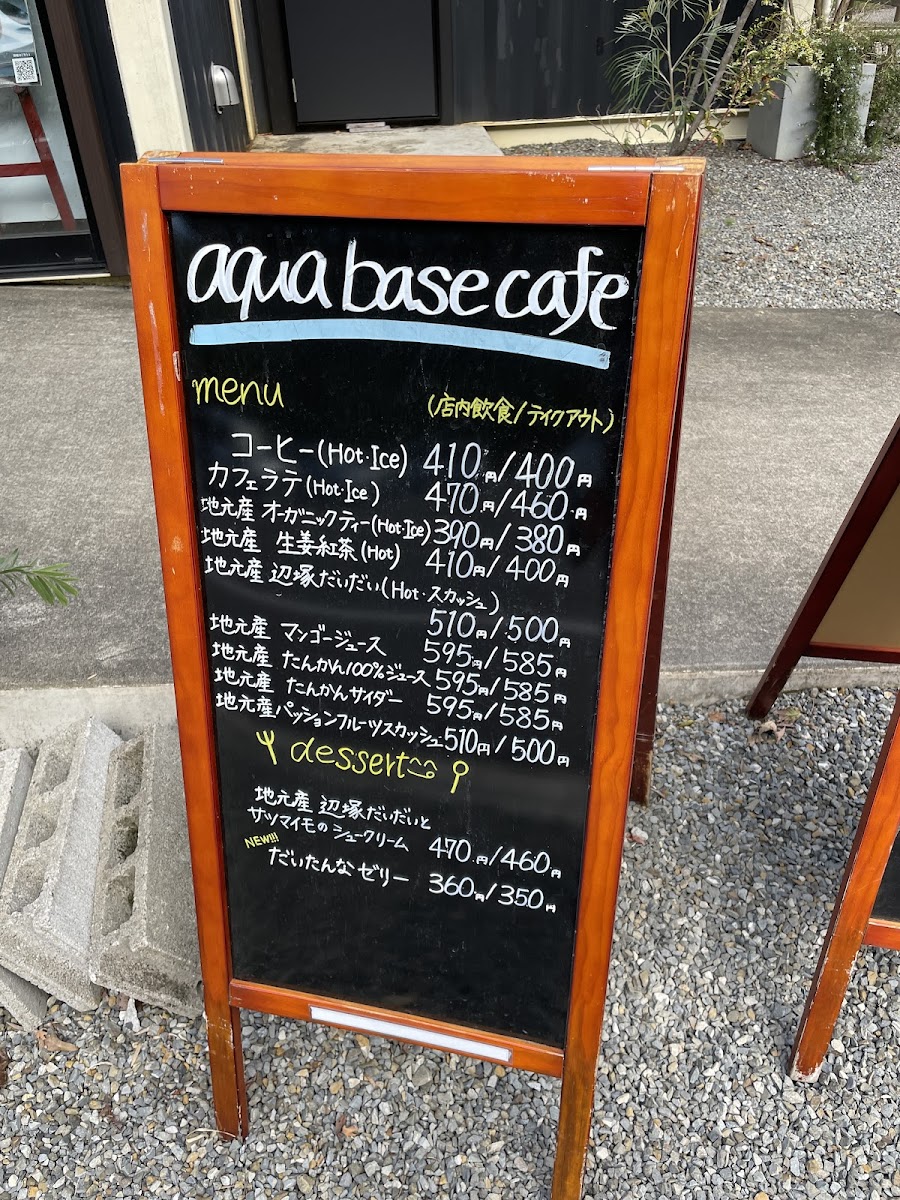 aqua base cafe
menu
(店内飲食/テイクアウト)
コーヒー(Hot・Ice) 410円/400円
カフェラテ(Hot・Ice) 470円/460円
地元産 オーガニックティー(Hot・Ice) 390円/380円
地元産 生姜紅茶(Hot) 410円/400円
地元産 辺塚だいだい(Hot・スカッシュ)
510円/500円
地元産 マンゴージュース 595円/585円
地元産 たんかん100%ジュース 595円/585円
地元産 たんかんサイダー 595円/585円
地元産パッションフルーツスカッシュ 510円/500円
dessert
地元産 辺塚だいだいと
サツマイモのシュークリーム 470円/460円
NEW!!!
だいたんなゼリー 360円/350円